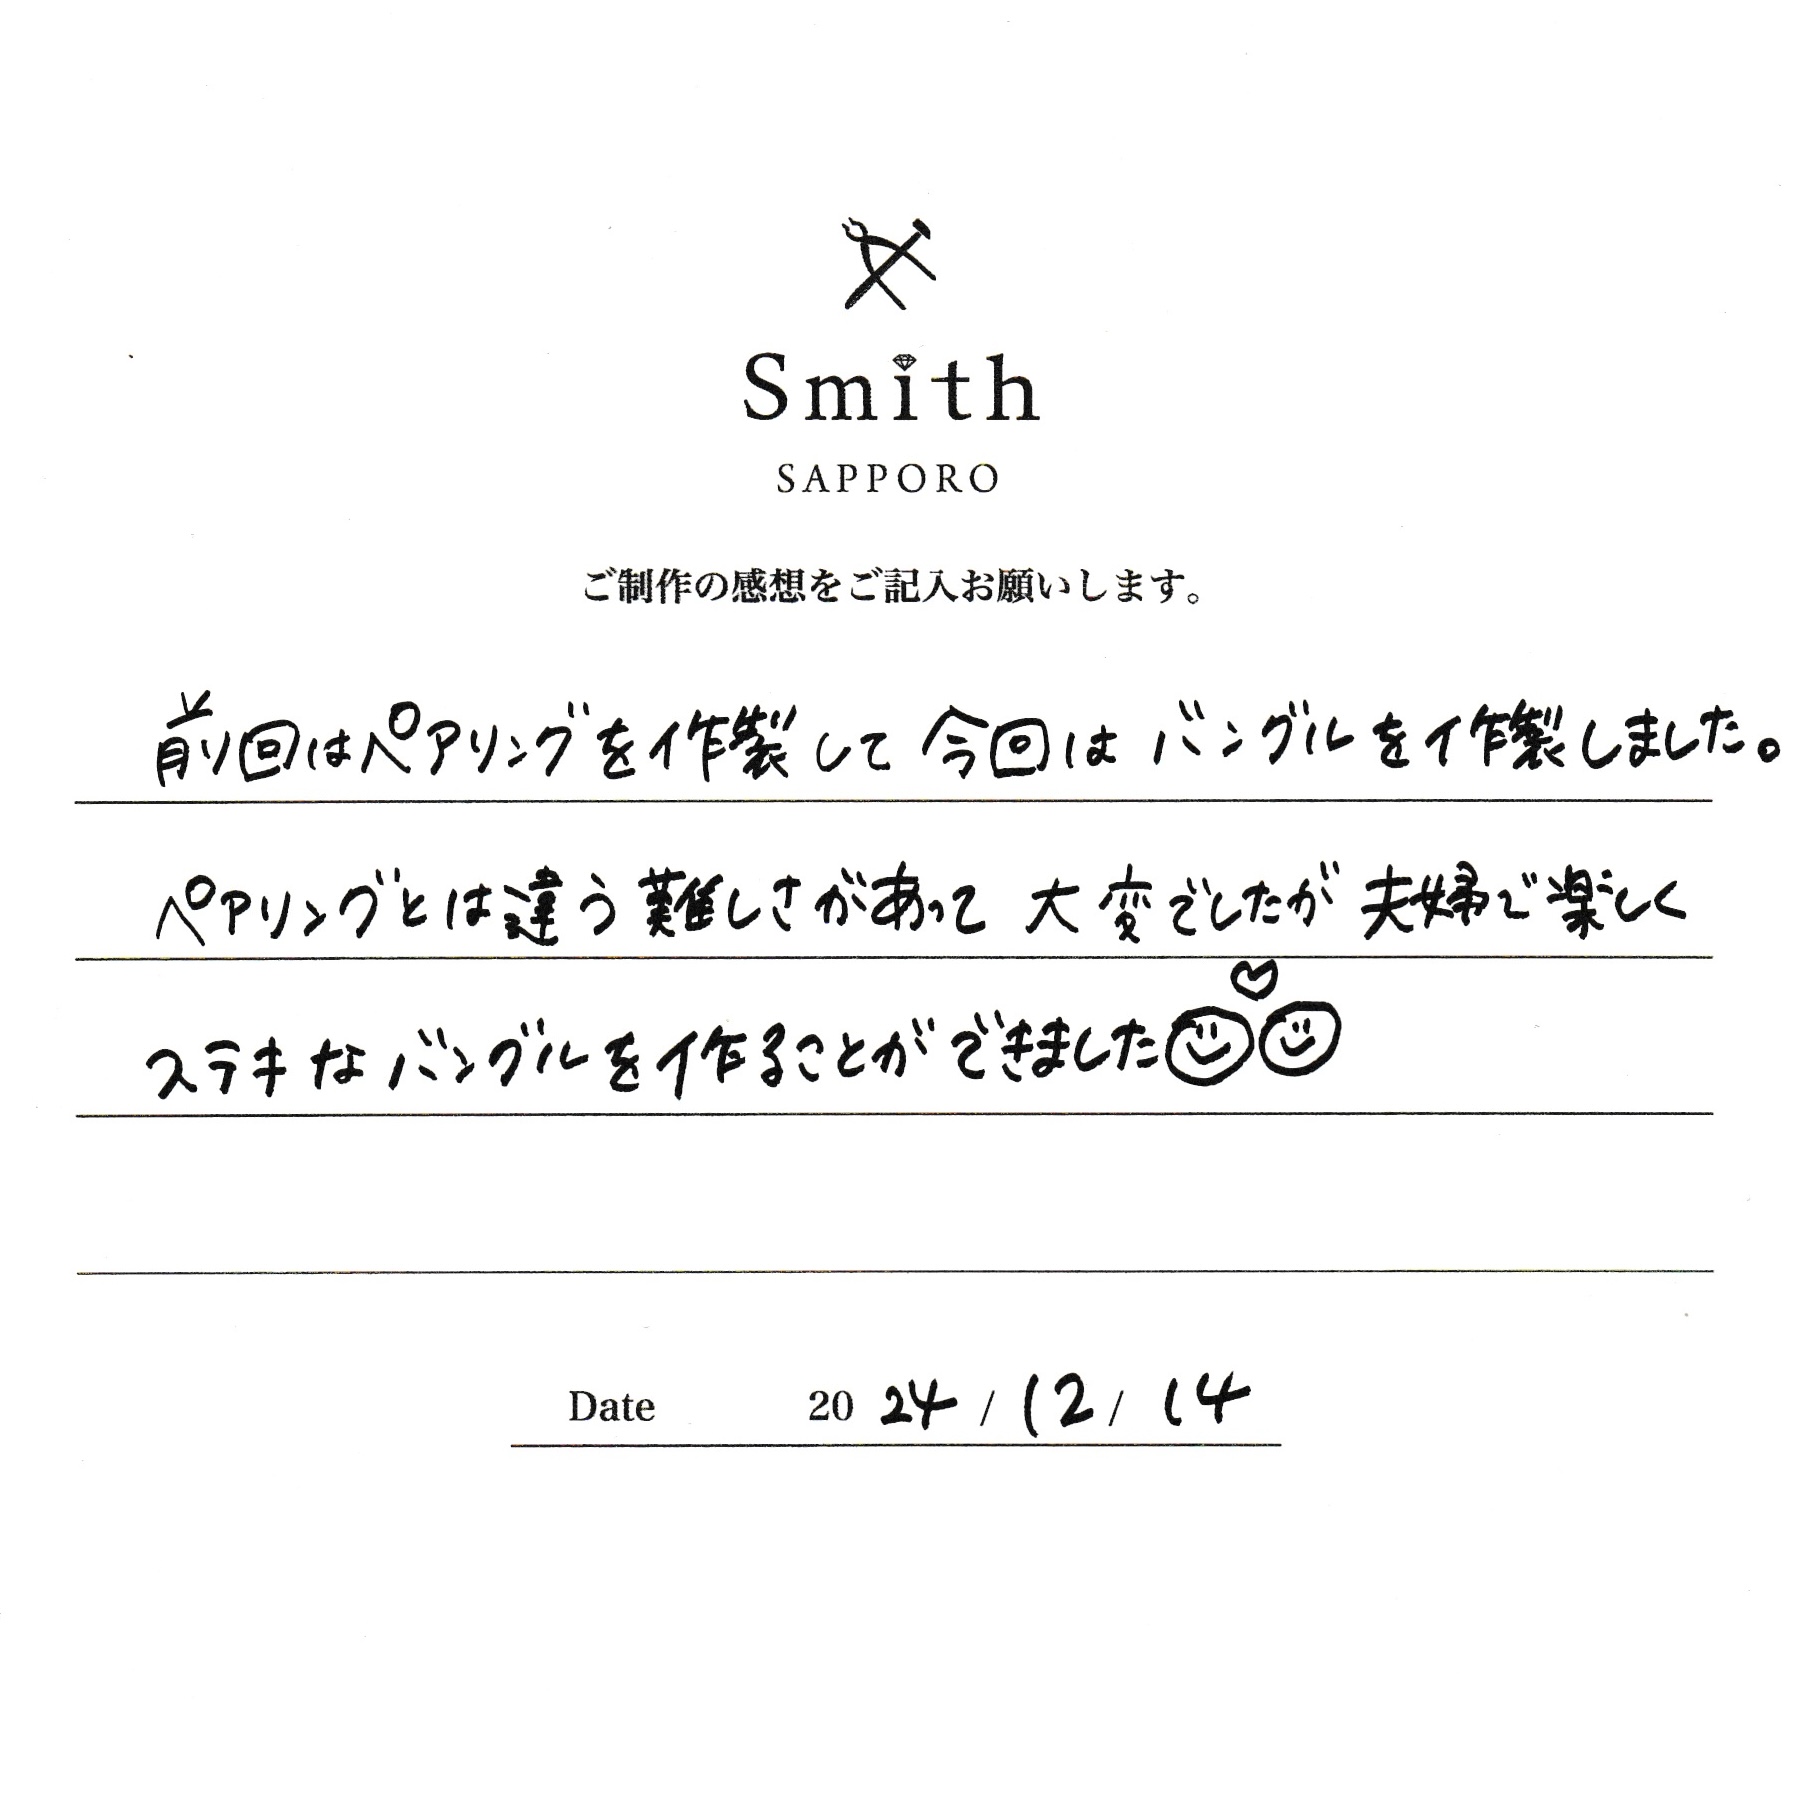 Smith
SAPPORO
ご制作の感想をご記入お願いします。
前回はペアリングを作製して今回はバングルを作製しました。
ペアリングとは違う難しさがあって大変でしたが夫婦で楽しく
ステキなバングルを作ることができました
Date 2024/12/14